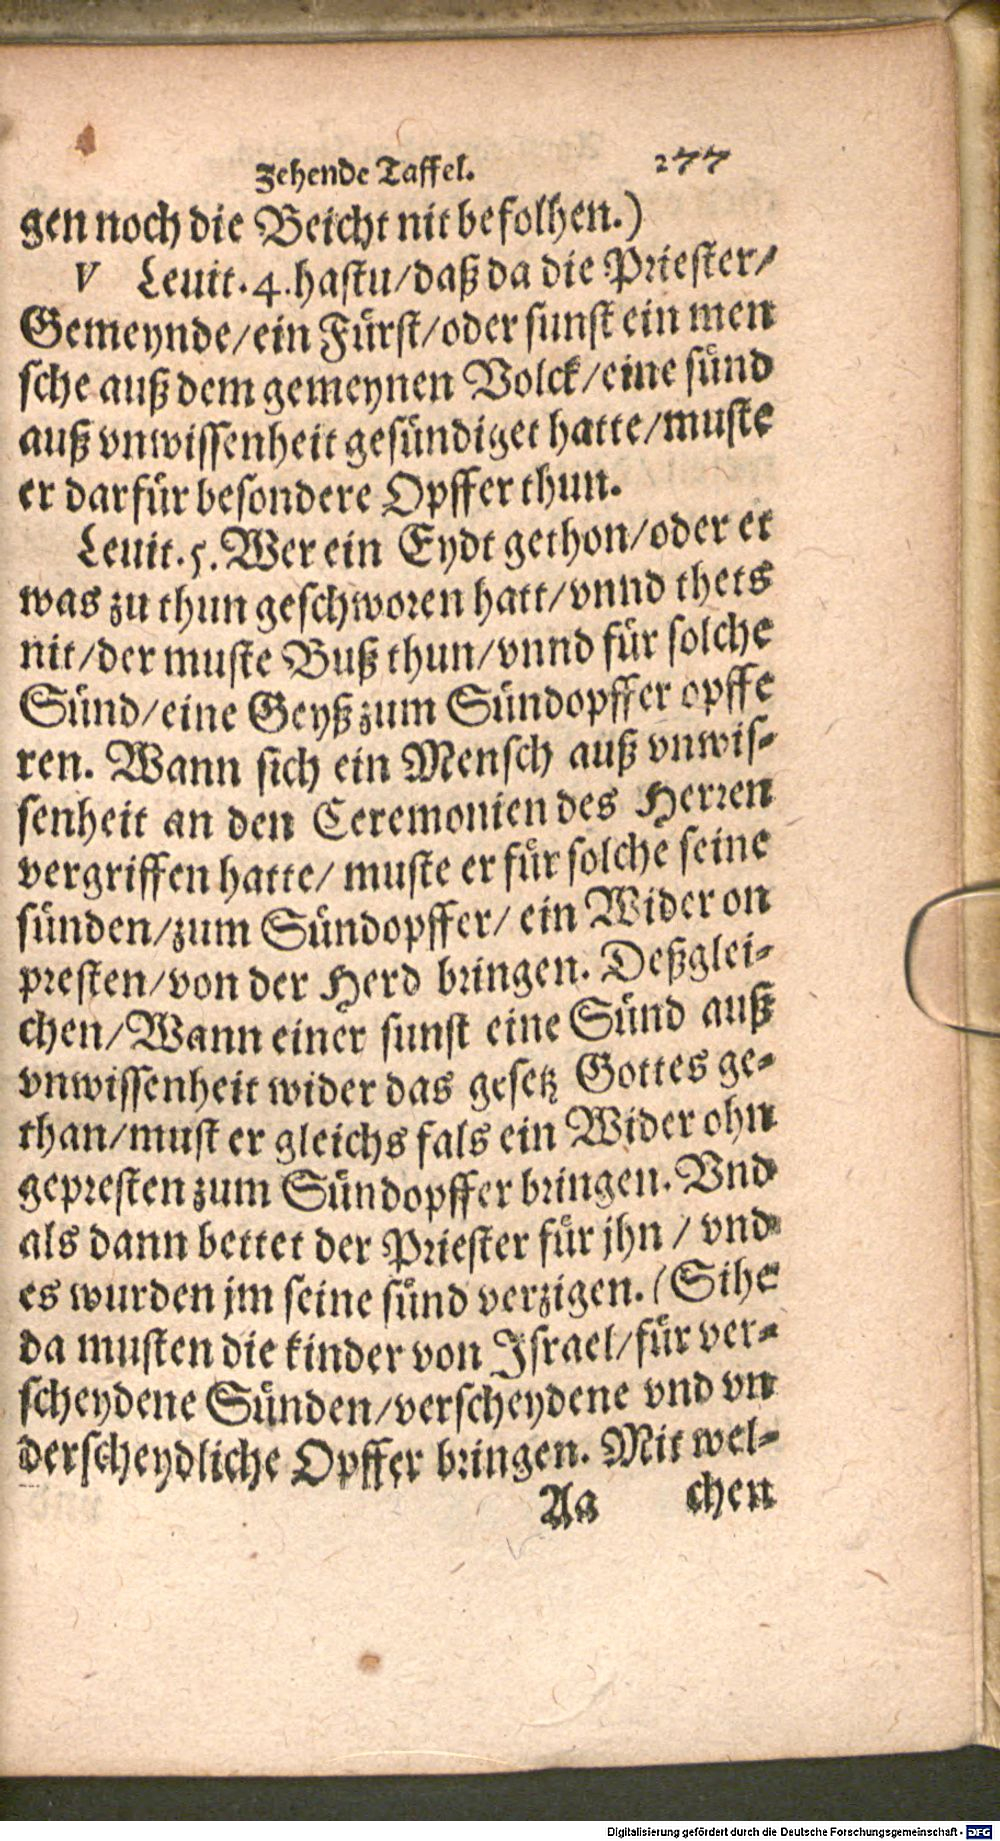 Zehende Taffel. 277
gen noch die Beicht nit befolhen.)
V Leuit. 4. hastu/daß da die Priester/
Gemeynde/ein Fürst/oder sunst ein men
sche auß dem gemeynen Volck/eine sünd
auß vnwissenheit gesündiget hatte/muste
er darfür besondere Opffer thun.
Leuit. 5. Wer ein Eydt gethon/oder et
was zu thun geschworen hatt/vnnd thets
nit/der muste Buß thun/vnnd für solche
Sünd/eine Geyß zum Sündopffer opffe
ren. Wann sich ein Mensch auß vnwis-
senheit an den Ceremonien des Herren
vergriffen hatte/ muste er für solche seine
sünden/zum Sündopffer/ ein Wider on
presten/von der Herd bringen. Deßglei-
chen/Wann einer sunst eine Sünd auß
vnwissenheit wider das gesetz Gottes ge-
than/must er gleichs fals ein Wider ohn
gepresten zum Sündopffer bringen. Vnd
als dann bettet der Priester für jhn / vnd
es wurden jm seine sünd verzigen. (Sihe
da musten die kinder von Israel/für ver-
scheydene Sünden/verscheydene vnd vn
derscheydliche Opffer bringen. Mit wel-
Aa chen
Digitalisierung gefördert durch die Deutsche Forschungsgemeinschaft - DFG